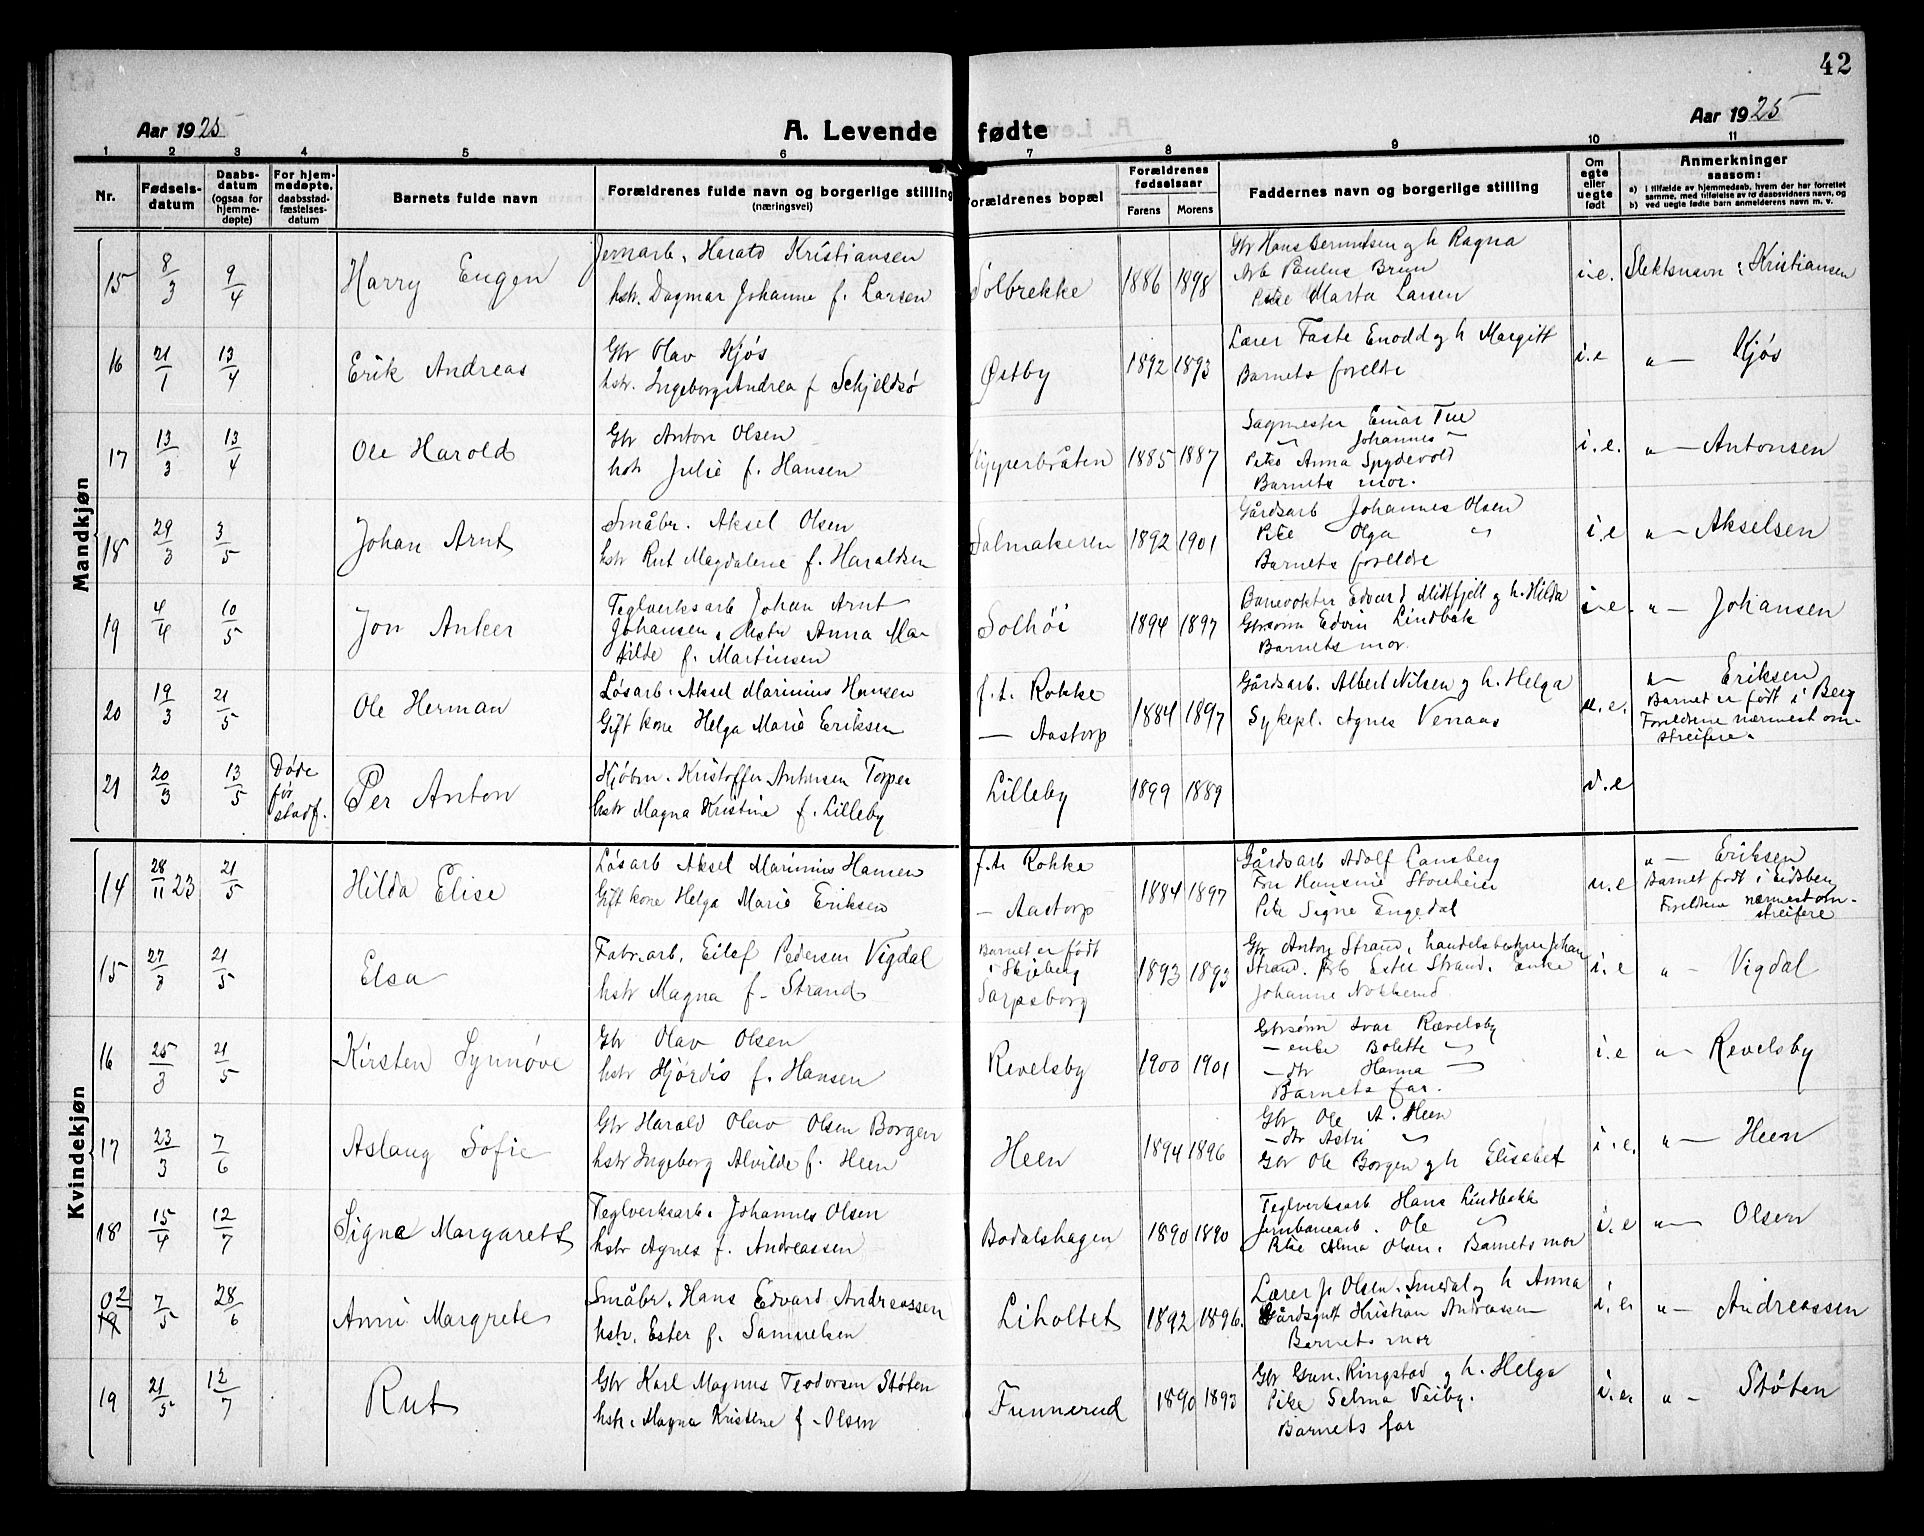 42
Aar 1925
A. Levende fødte
Aar 1925
1 2 3 4 5 6 7 8 9 10 11
Nr.
Fødsels-
datum
Daabs-
datum
(ogsaa for
hjemme-
døpte)
For hjem-
medøpte,
daabsstad-
fæstelses-
datum
Barnets fulde navn
Forældrenes fulde navn og borgerlige stilling
(næringsvei)
Forældrenes bopæl
Forældrenes
fødselsaar
Farens Morens
Faddernes navn og borgerlige stilling
Om
egte
eller
uegte
født
Anmerkninger
saasom:
a) i tilfælde av hjemmedaab, hvem der har forrettet
samme, med tilføielse av to daapsvidners navn, og
b) ved uegte fødte barn anmelderens navn m. v.
Mandkjøn
15 8/3 9/4 Harry Eugen
Jernarb. Harald Kristiansen
hstr. Dagmar Johanne f. Larsen
Solbrekke 1886 1898
Gbr Hans Berntsen og h Ragna
Arb Paulus Brun
Pike Marta Larsen
i.e. Slektsnavn: Kristiansen
16 21/1 13/4 Erik Andreas
Gbr Olav Kjøs
hstr. Ingeborg Andrea f Schjeldsø
Østby 1892 1893
Lærer Faste Enodd og h Margitt
Barnets foreldre
i.e " — Kjøs
17 13/3 13/4 Ole Harold
Gbr Anton Olsen
hstr Julie f. Hansen
1885 1887
Sagmester Einar Tue
" Johannes "
Pike Anna Spydevold
Barnets mor.
i.e. " — Antonsen
18 29/3 3/5 Johan Arnt
Småbr. Aksel Olsen
hstr Rut Magdalene f. Haraldsen
Salmakeren 1892 1901
Gårdsarb Johannes Olsen
Pike Olga "
Barnets foreldre
i.e " — Akselsen
19 4/4 10/5 Jon Anker
Teglverksarb Johan Arnt
Johansen, hstr Anna Ma-
tilde f. Martinsen
Solhöi 1894 1897
Banevokter Edvard Midtfjell og h. Hilda
Gbrsønn Edvin Lindbæk
Barnets mor
i.e. " — Johansen
20 19/3 21/5 Ole Herman
Løsarb. Aksel Marinius Hansen
Gift kone Helga Marie Eriksen
f.t. Rokke
— Aastorp
1884 1897
Gårdsarb. Albert Nilsen og h. Helga
Sykepl. Agnes Venaas
u.e.
" — Eriksen
Barnet er født i Berg
Foreldrene nærmest om-
streifere.
21 20/3 13/5
Døde
før
stadf.
Per Anton
Kjøbm. Kristoffer Antonsen Torper
hstr Magna Kristine f. Lilleby
Lilleby 1899 1889
i.e
Kvindekjøn
14 28/11 23 21/5 Hilda Elise
Løsarb Aksel Marinius Hansen
Gift kone Helga Marie Eriksen
f.t. Rokke
— Aastorp
1884 1897
Gårdsarb Adolf Lansberg
Fru Hansine
Pike Signe Engedal
u.e
" — Eriksen
Barnet født i Eidsberg
Foreldrene nærmest om-
streifere
15 27/3 21/5 Elsa
Fabr.arb. Eilef Pedersen Vigdal
hstr Magna f. Strand
Barnet er født
i Skjeberg
Sarpsborg
1893 1893
Gbr Anton Strand, handelsbestyrer Johan
Strand. Ester Strand. Enke
Johanne Nokkerud
i.e " — Vigdal
16 25/3 21/5 Kirsten Synnøve
Gbr Olav Olsen
hstr Hjørdis f. Hansen
Revelsby 1900 1901
Gbrsønn Ivar Rævelsby
— enke Bolette "
— dtr Hanna "
Barnets far.
i.e " — Revelsby
17 23/3 7/6 Aslaug Sofie
Gbr Harald Olav Olsen Borgen
hstr Ingeborg Alvilde f. Heen
Heen 1894 1896
Gbr Ole A. Heen
— dtr Astri "
Gbr Ole Borgen og h Elisabet
i.e. " — Heen
18 15/4 12/7 Signe Margaret
Teglverksarb. Johannes Olsen
hstr Agnes f. Andreassen
Bodalshagen 1890 1890
Teglverksarb Hans Lindbakk
Jernbanearb. Ole "
Pike Alma Olsen. Barnets mor
i.e " — Olsen
02
19 7/5 28/6 Anni Margrete
Småbr. Hans Edvard Andreassen
hstr. Ester f. Samuelsen
Liholtet 1892 1896.
Lærer Olsen Smedal og h Anna
Gårdsgutt Kristian Andreassen
Barnets mor
i.e. " — Andreassen
19 21/5 12/7 Rut
Gbr Karl Magnus Teodorsen Støten
hstr. Magna Kristine f. Olsen
Funnerud 1890 1893
Gbr Gun. Ringstad og h. Helga
Pike Selma Veiby.
Barnets far
i.e. " — Støten